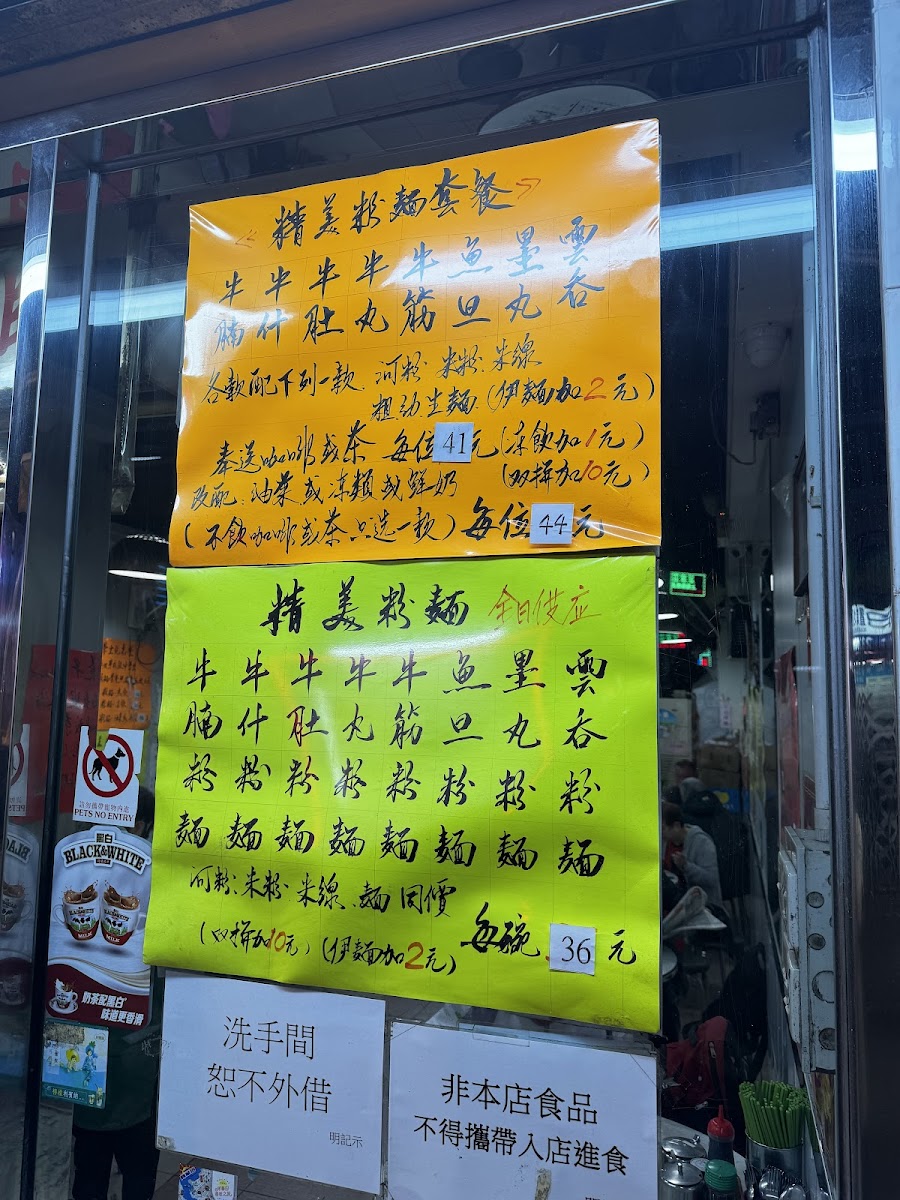 《精美粉麵套餐》
牛 牛 牛 牛 牛 魚 墨 雲
腩 什 肚 丸 筋 旦 丸 吞
各款配下列一款：河粉 米粉：米線
粗幼生麵.(伊麵加2元)
奉送咖啡或茶 每位41元(冻飲加1元)
(双拼加10元)
改配：油菜或冻類或鮮奶
(不飲咖啡或茶只选一款)每位44元
精美粉麵 全日供应
牛 牛 牛 牛 牛 魚 墨 雲
腩 什 肚 丸 筋 旦 丸 吞
粉 粉 粉 粉 粉 粉 粉 粉
麵 麵 麵 麵 麵 麵 麵 麵
河粉：米粉 米線、麵 同價
(双拼加10元)(伊麵加2元) 每碗 36 元
PETS NO ENTRY
黑白
BLACK&WHITE
MILK
奶茶配黑白
味道更香滑
洗手間
恕不外借
明記示
非本店食品
不得攜帶入店進食